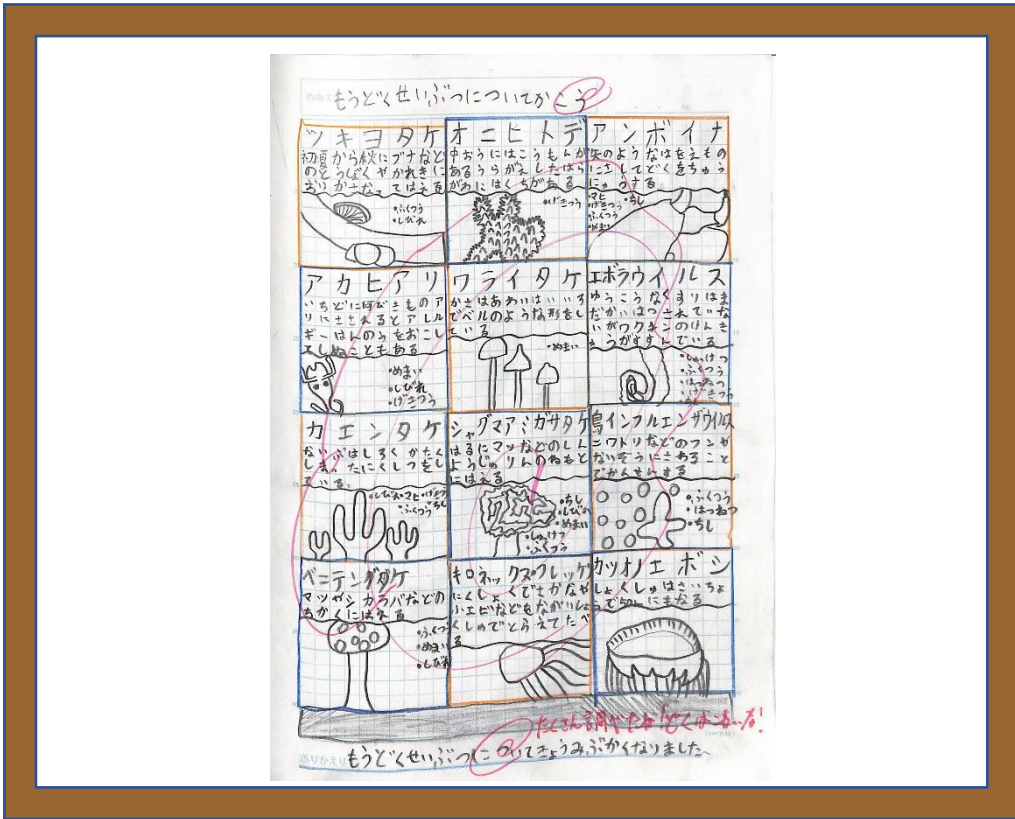 めあて
もうどくせいぶつについてかこう
ツキヨタケ
初夏から秋にブナなど
のとうぼくやかれきに
おいかさなってはえる
・ふくつう
・しびれ
オニヒトデ
中おうにはこうもんが
あるうらがえしたはら
がわにはくちがある
・げきつう
アンボイナ
矢のようなはをえもの
にさしてどくをちゅう
にゅうする
・マヒ
・げきつう
・ふくつう
・めまい
・ちし
アカヒアリ
いちどに何びきものア
リにさされるとアレル
ギーはんのうをおこし
てしぬこともある
・めまい
・しびれ
・げきつう
ワライタケ
かさはあわいはいいろ
でベルのような形をし
ている
・めまい
エボラウイルス
ゆうこうなくすりはま
だかいはつされていな
いがワクチンのけんき
ゅうがすすんでいる
・しゅっけつ
・ふくつう
・はつねつ
・げきつう
・ちし
カエンタケ
ないぶはしろくかたく
しまったにくしつをし
ている。
・しびれ・マヒ・げきつう
・ふくつう ・ちし
シャグマアミガサタケ
はるにマツなどのしん
ようじゅりんのねもと
にはえる
・ちし
・しびれ
・めまい
・しゅっけつ
・ふくつう
鳥インフルエンザウイルス
ニワトリなどのフンや
ないぞうにさわること
でかんせんする
・ふくつう
・はつねつ
・ちし
ベニテングダケ
マツやシカラバなどの
ちかくにはえる
・ふくつう
・めまい
・しびれ
キロネックスフレッケリ
にくしょくでさかなや
小エビなどをながいしょ
くしゅでとらえてたべ
る
カツオノエボシ
しょくしゅはさいちょ
うで50mにもなる
たくさん調べたね!どくはこわいな!
ふりかえり
もうどくせいぶつについてきょうみぶかくなりました。